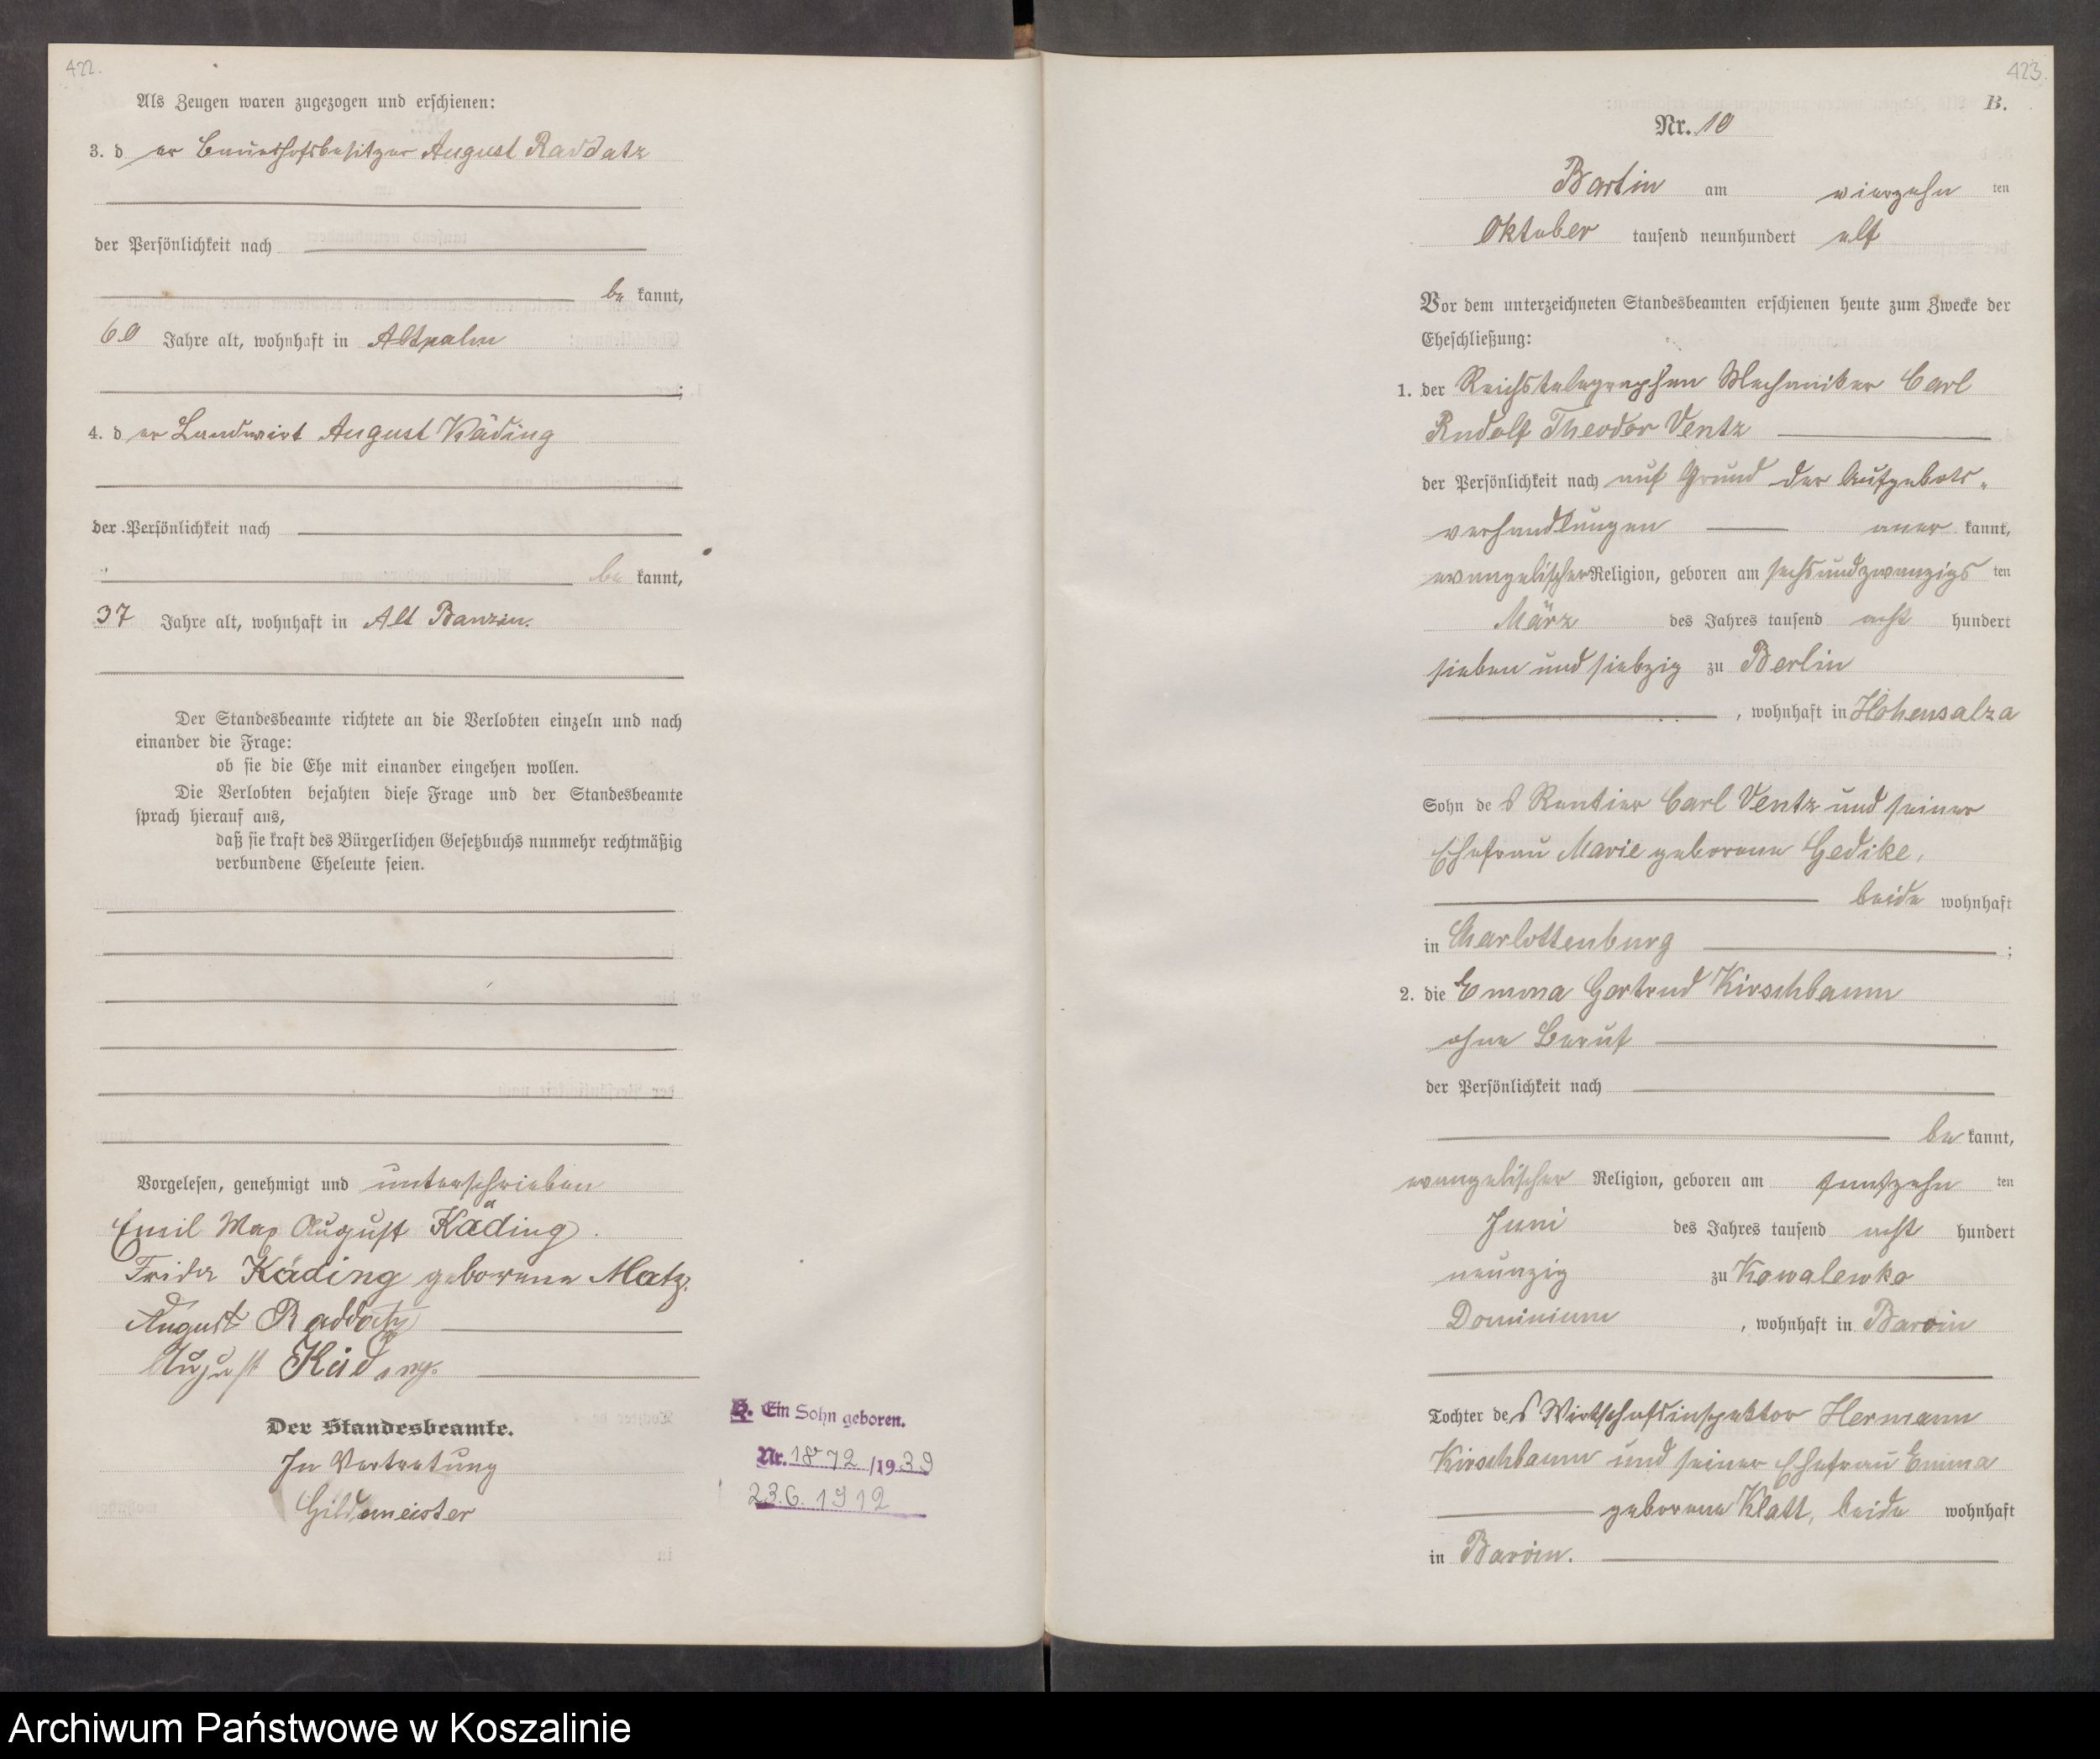 422.
Als Zeugen waren zugezogen und erschienen:
3. d er Bauerhofsbesitzer August Raddatz
der Persönlichkeit nach
be kannt,
60 Jahre alt, wohnhaft in Altpalm
;
4. d er Landwirt August Käding
der Persönlichkeit nach
be kannt,
37 Jahre alt, wohnhaft in Alt Banzin.
Der Standesbeamte richtete an die Verlobten einzeln und nach
einander die Frage:
ob sie die Ehe mit einander eingehen wollen.
Die Verlobten bejahten diese Frage und der Standesbeamte
sprach hierauf aus,
daß sie kraft des Bürgerlichen Gesetzbuchs nunmehr rechtmäßig
verbundene Eheleute seien.
Vorgelesen, genehmigt und unterschrieben
Emil Max August Käding.
Frida Käding geborene Matz.
August Raddatz
August Käding.
Der Standesbeamte.
In Vertretung
Gildemeister
Ein Sohn geboren.
Nr. 1872/1939
23.6.1912
423.
B.
Nr. 10
Bartin am vierzehn ten
Oktober tausend neunhundert elf
Vor dem unterzeichneten Standesbeamten erschienen heute zum Zwecke der
Eheschließung:
1. der Reichstelegraphen Mechaniker Carl
Rudolf Theodor Ventz
der Persönlichkeit nach auf Grund der Aufgebots-
verhandlungen aner kannt,
evangelischer Religion, geboren am sechsundzwanzigs ten
März des Jahres tausend acht hundert
sieben und siebzig zu Berlin
, wohnhaft in Hohensalza
Sohn de s Rentier Carl Ventz und seiner
Ehefrau Marie geborene Gedike,
beide wohnhaft
in Charlottenburg ;
2. die Emma Gertrud Kirschbaum
ohne Beruf
der Persönlichkeit nach
be kannt,
evangelischer Religion, geboren am funfzehn ten
Juni des Jahres tausend acht hundert
neunzig zu Kowalewko
Dominium , wohnhaft in Barvin
Tochter de s Wirtschaftsinspektor Hermann
Kirschbaum und seiner Ehefrau Emma
geborene Klatt, beide wohnhaft
in Barvin.
Archiwum Państwowe w Koszalinie